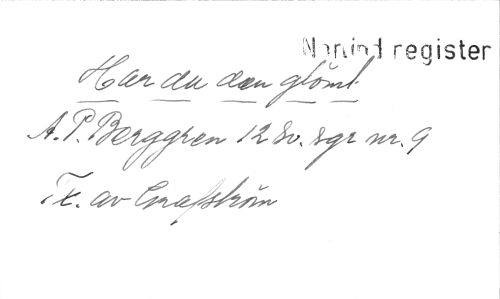 Norlind register
Har du den glömt
A. P. Berggren 12 Sv. sgr nr. 9
Tx. av Grafström